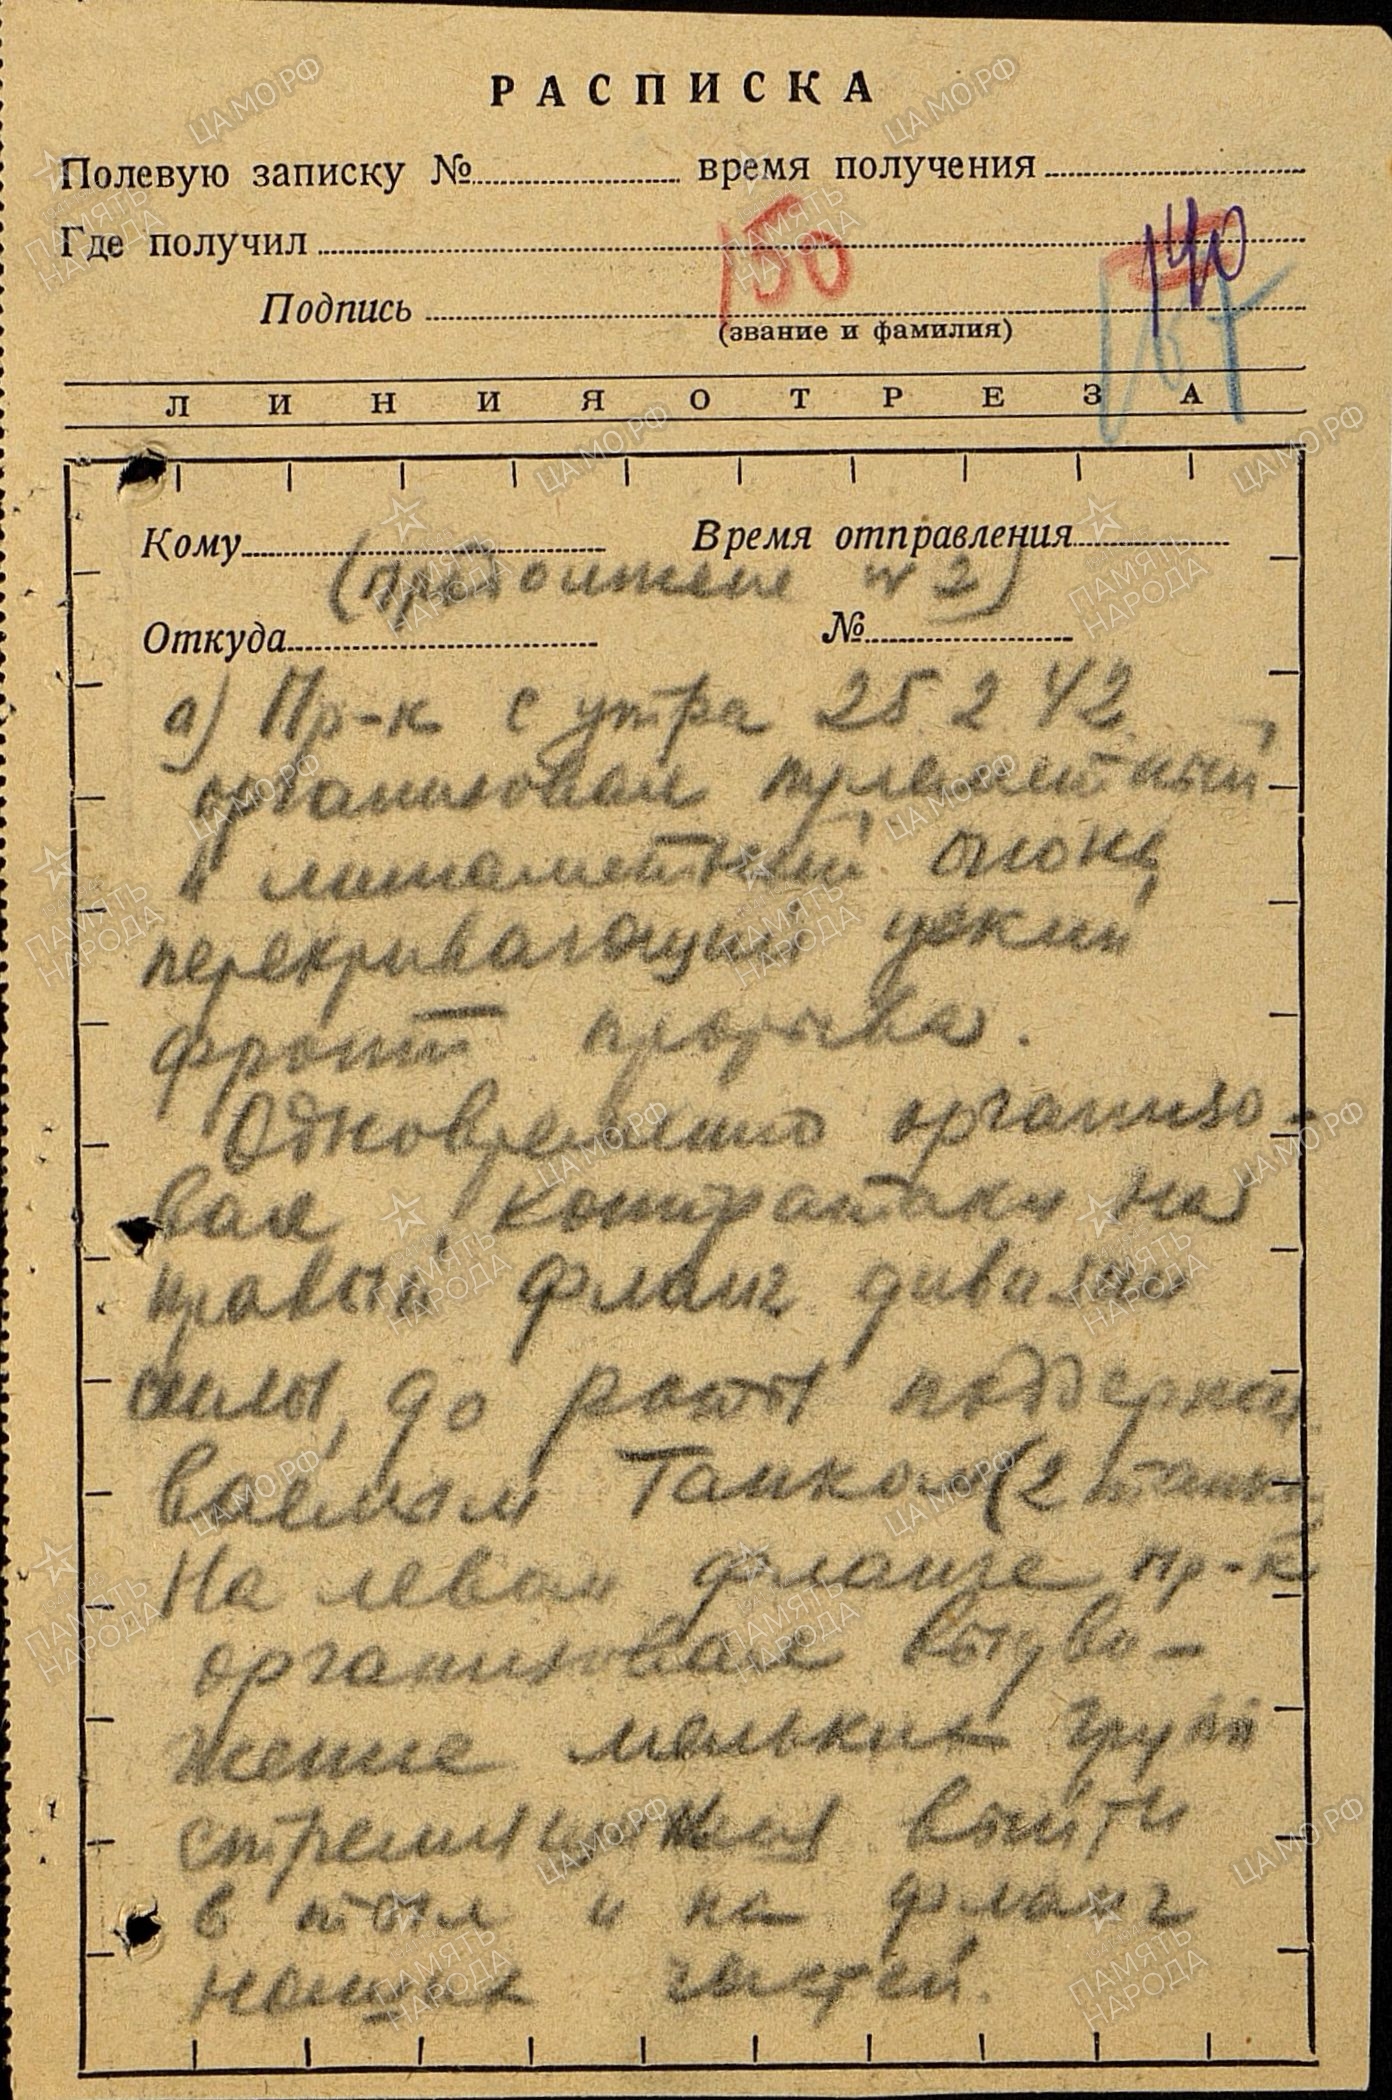 РАСПИСКА
Полевую записку № время получения
Где получил
150
140
Подпись
(звание и фамилия)
ЛИНИЯ ОТРЕЗА
Кому Время отправления
(продолжение № 2)
Откуда №
а) Пр-к с утра 25.2.42
организовал пулеметный
и минометный огонь
перекрывающий узкий
фронт прорыва.
Одновременно организо-
вал контратаки на
правый фланг дивизии
силы, до роты поддержи
ваемой танком (2 танка
На левом фланге пр-к
организовал выдви-
жение мелких групп
стремящихся выйти
в тыл и на фланг
наших частей.